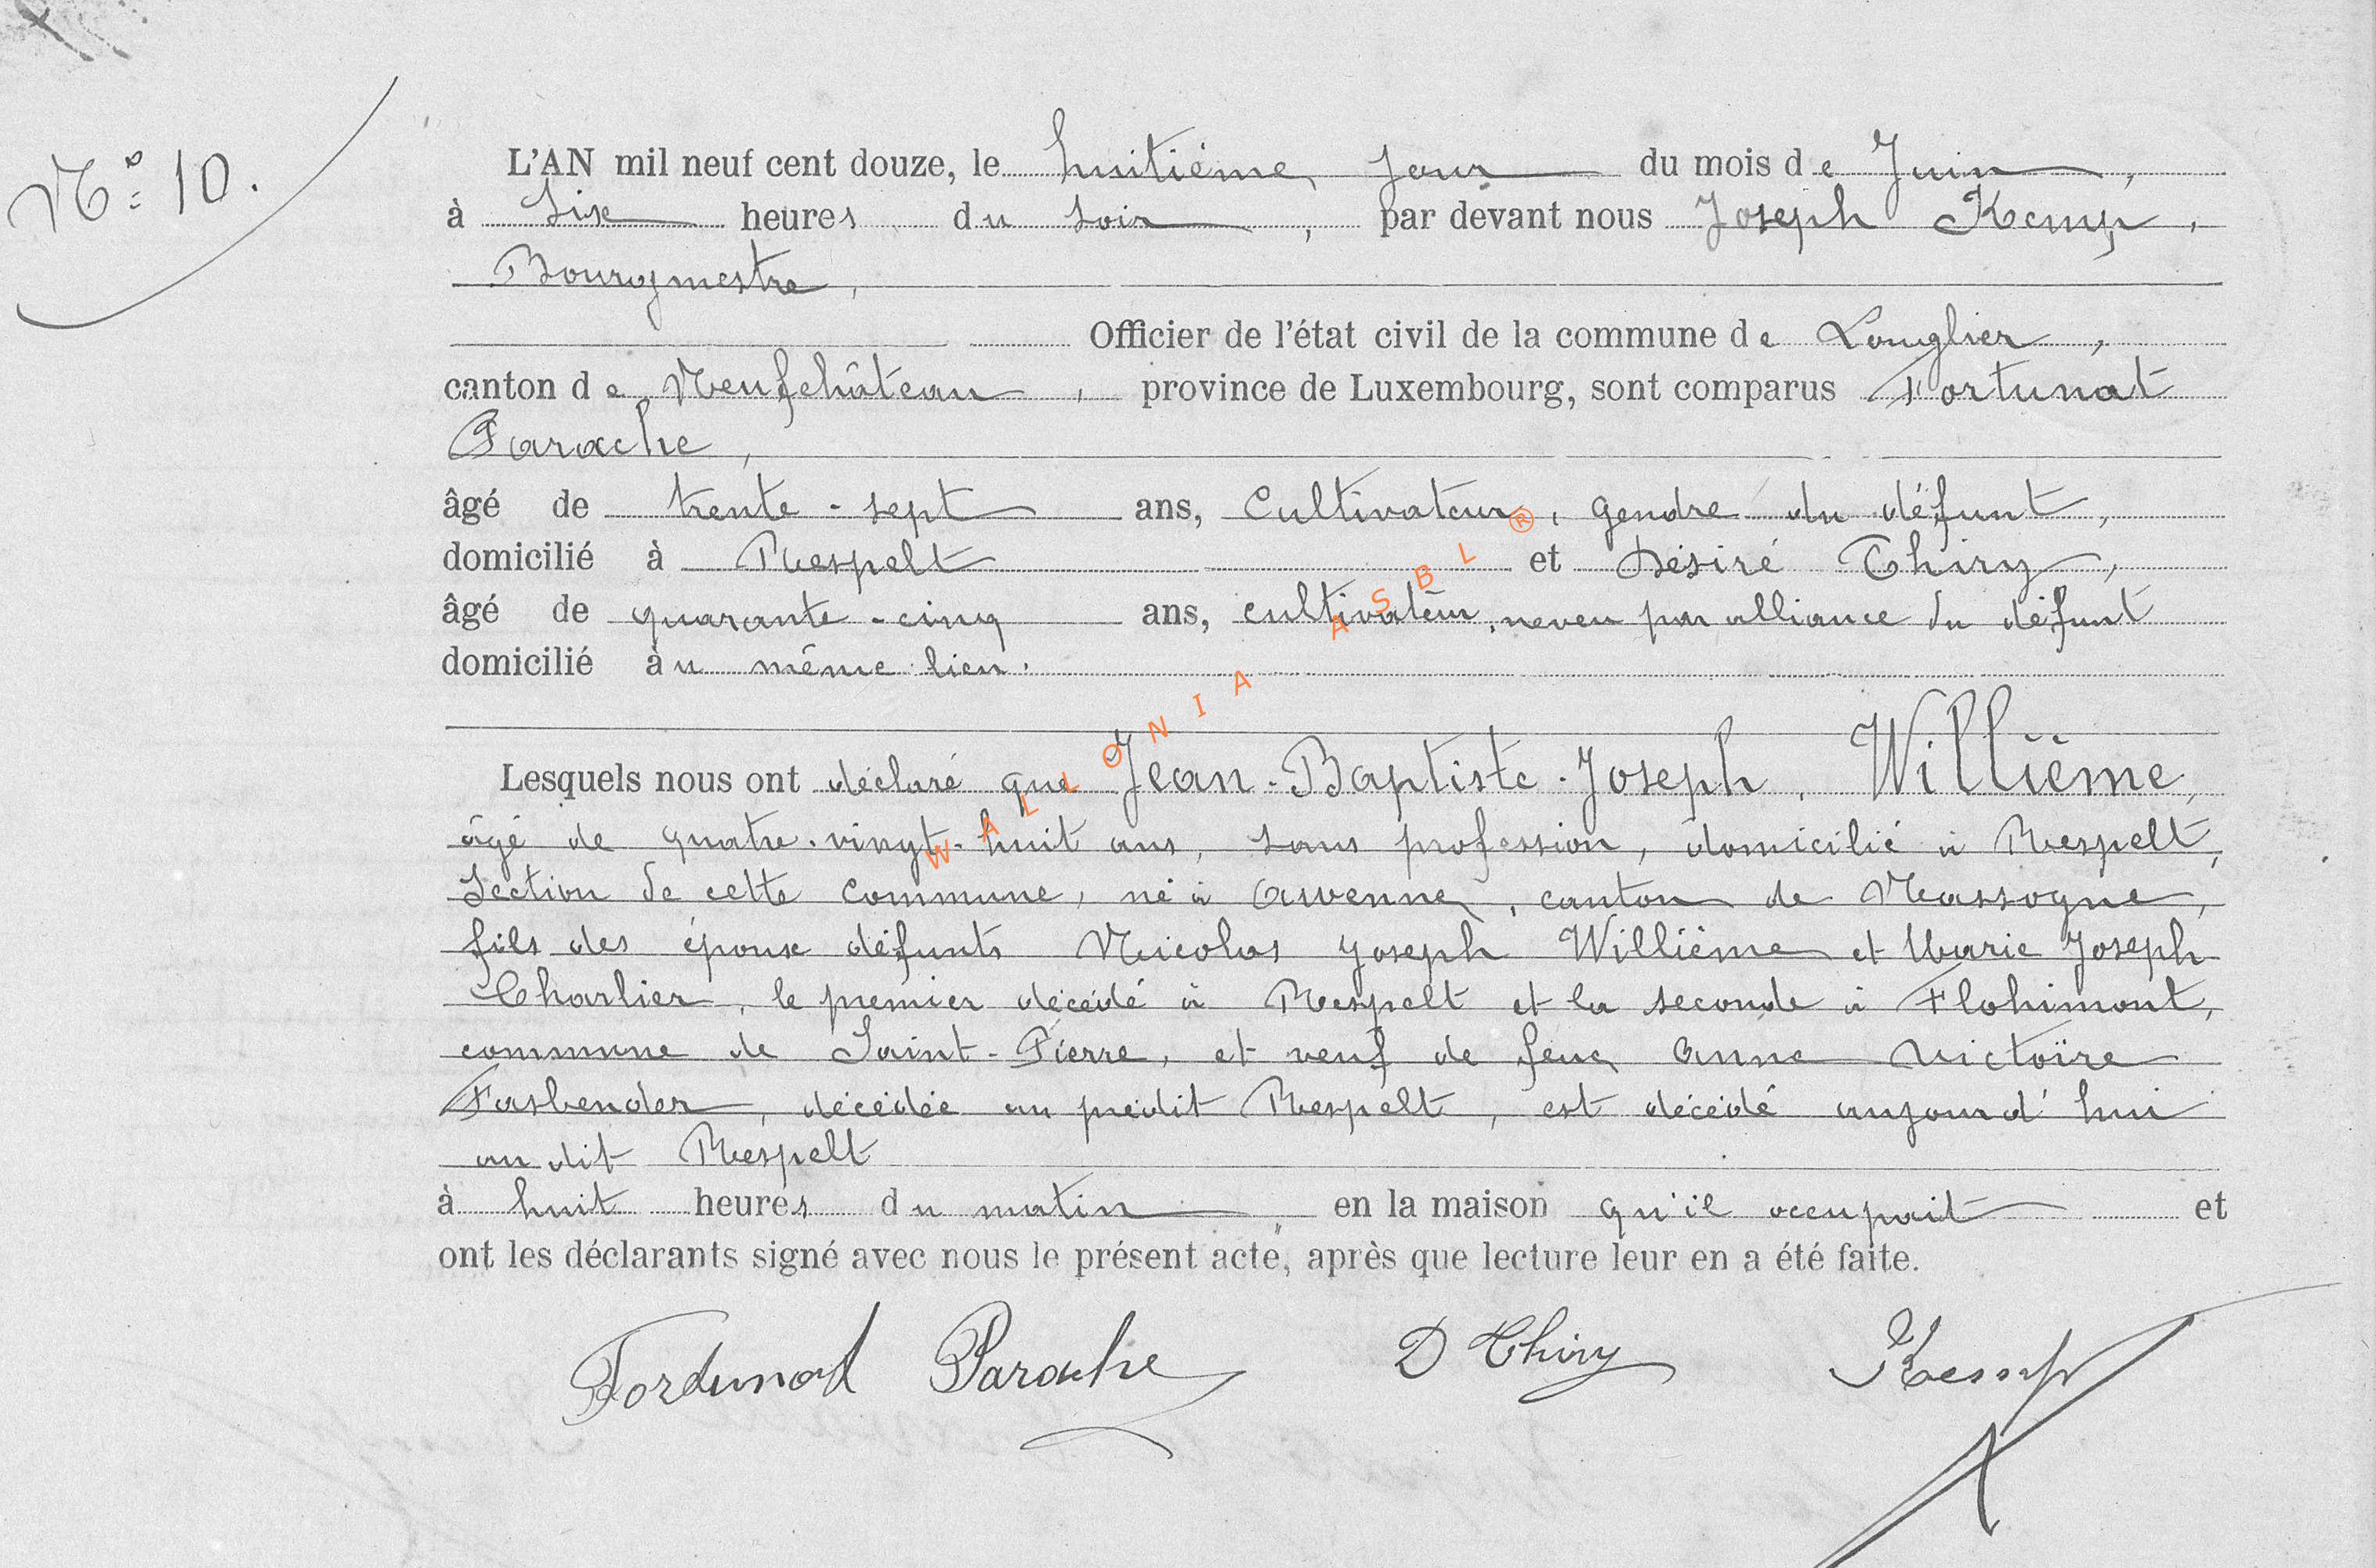 N° 10.
L'AN mil neuf cent douze, le huitième jour du mois de Juin,
à six heures du soir, par devant nous Joseph Kemp,
Bourgmestre,
Officier de l'état civil de la commune de Longlier,
canton de Neufchâteau, province de Luxembourg, sont comparus Fortunat
Parache,
âgé de trente-sept ans, Cultivateur, gendre du défunt,
domicilié à Respelt et Désiré Thiry,
âgé de quarante-cinq ans, cultivateur, neveu par alliance du défunt
domicilié au même lieu.
Lesquels nous ont déclaré que Jean-Baptiste-Joseph, Willième,
âgé de quatre-vingt-huit ans, sans profession, domicilié à Respelt,
section de cette commune, né à Awenne, canton de Nassogne,
fils des époux défunts Nicolas Joseph Willième et Marie Joseph
Charlier, le premier décédé à Respelt et la seconde à Flohimont,
commune de Saint-Pierre, et veuf de feue Anne Victoire
Fasbender, décédée au prédit Respelt, est décédé aujourd'hui
au dit Respelt
à huit heures du matin en la maison qu'il occupait et
ont les déclarants signé avec nous le présent acte, après que lecture leur en a été faite.
Fortunat Parache D Thiry Kemp
WALLONIA ASBL ®